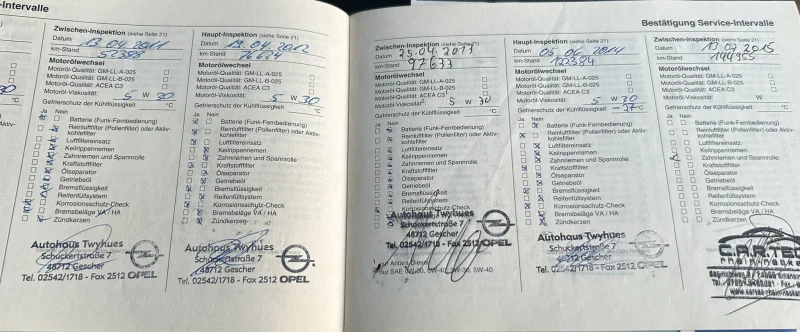 -Intervalle
Zwischen-Inspektion (siehe Seite 21)
Datum 13.04.2011
km-Stand 52388
Motorölwechsel
Motoröl-Qualität: GM-LL-A-025
Motoröl-Qualität: GM-LL-B-025
Motoröl-Qualität: ACEA C3
Motoröl-Viskosität: 5 W 30
Gefrierschutz der Kühlflüssigkeit: °C
Ja Nein
Batterie (Funk-Fernbedienung)
Reinluftfilter (Pollenfilter) oder Aktiv-
kohlefilter
Luftfiltereinsatz
Keilrippenriemen
Zahnriemen und Spannrolle
Kraftstofffilter
Ölseparator
Getriebeöl
Bremsflüssigkeit
Reifenfüllsystem
Korrosionsschutz-Check
Bremsbeläge VA / HA
Zündkerzen
Autohaus Twyhues
Schuckertstraße 7
48712 Gescher
Tel. 02542/1718 - Fax 2512 OPEL
Haupt-Inspektion (siehe Seite 21)
Datum
km-Stand
Motorölwechsel
Motoröl-Qualität: GM-LL-A-025
Motoröl-Qualität: GM-LL-B-025
Motoröl-Qualität: ACEA C3
Motoröl-Viskosität: 5 W 30
Gefrierschutz der Kühlflüssigkeit: °C
Ja Nein
Batterie (Funk-Fernbedienung)
Reinluftfilter (Pollenfilter) oder Aktiv-
kohlefilter
Luftfiltereinsatz
Keilrippenriemen
Zahnriemen und Spannrolle
Kraftstofffilter
Ölseparator
Getriebeöl
Bremsflüssigkeit
Reifenfüllsystem
Korrosionsschutz-Check
Bremsbeläge VA / HA
Zündkerzen
Autohaus Twyhues
Schuckertstraße 7
48712 Gescher
Tel. 02542/1718 - Fax 2512 OPEL
Bestätigung Service-Intervalle
Zwischen-Inspektion (siehe Seite 21)
Datum 25.04.2013
km-Stand 97633
Motorölwechsel
Motoröl-Qualität: GM-LL-A-025
Motoröl-Qualität: GM-LL-B-025
Motoröl-Qualität: ACEA C3
Motoröl-Viskosität: 5 W 30
Gefrierschutz der Kühlflüssigkeit: °C
Ja Nein
Batterie (Funk-Fernbedienung)
Reinluftfilter (Pollenfilter) oder Aktiv-
kohlefilter
Luftfiltereinsatz
Keilrippenriemen
Zahnriemen und Spannrolle
Kraftstofffilter
Ölseparator
Getriebeöl
Bremsflüssigkeit
Reifenfüllsystem
Korrosionsschutz-Check
Autohaus Twyhues
Schuckertstraße 7
48712 Gescher
Tel. 02542/1718 - Fax 2512 OPEL
Haupt-Inspektion (siehe Seite 21)
Datum 05.06.2014
km-Stand
Motorölwechsel
Motoröl-Qualität: GM-LL-A-025
Motoröl-Qualität: GM-LL-B-025
Motoröl-Qualität: ACEA C3
Motoröl-Viskosität: 5 W 30
Gefrierschutz der Kühlflüssigkeit: °C
Ja Nein
Batterie (Funk-Fernbedienung)
Reinluftfilter (Pollenfilter) oder Aktiv-
kohlefilter
Luftfiltereinsatz
Keilrippenriemen
Zahnriemen und Spannrolle
Kraftstofffilter
Ölseparator
Getriebeöl
Bremsflüssigkeit
Reifenfüllsystem
Korrosionsschutz-Check
Bremsbeläge VA / HA
Zündkerzen
Autohaus Twyhues
Schuckertstraße 7
48712 Gescher
Tel. 02542/1718 - Fax 2512 OPEL
Zwischen-Inspektion (siehe Seite 21)
Datum 13.07.2015
km-Stand 144955
Motorölwechsel
Motoröl-Qualität: GM-LL-A-025
Motoröl-Qualität: GM-LL-B-025
Motoröl-Qualität: ACEA C3
Motoröl-Viskosität: W
Gefrierschutz der Kühlflüssigkeit: °C
Ja Nein
Batterie (Funk-Fernbedienung)
Reinluftfilter (Pollenfilter) oder Aktiv-
kohlefilter
Luftfiltereinsatz
Keilrippenriemen
Zahnriemen und Spannrolle
Kraftstofffilter
Ölseparator
Getriebeöl
Bremsflüssigkeit
Reifenfüllsystem
Korrosionsschutz-Check
Bremsbeläge VA / HA
Zündkerzen